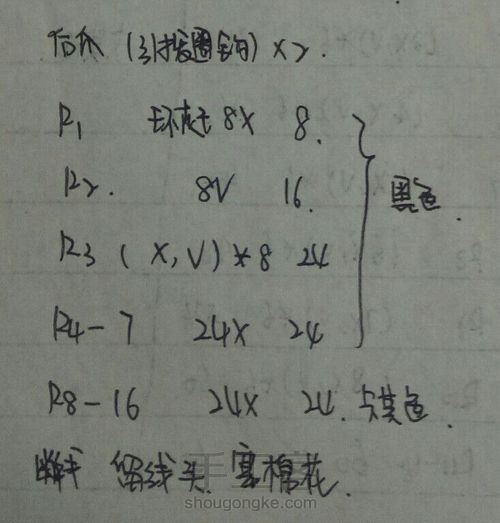 后爪 (引拔圈钩) ×2.
R1 环起 8X 8.
R2. 8V 16.
R3 ( X, V) * 8 24
R4-7 24X 24
黑色.
R8-16 24X 24. 卡其色.
断线 留线头. 塞棉花.
手工客
shougongke.com